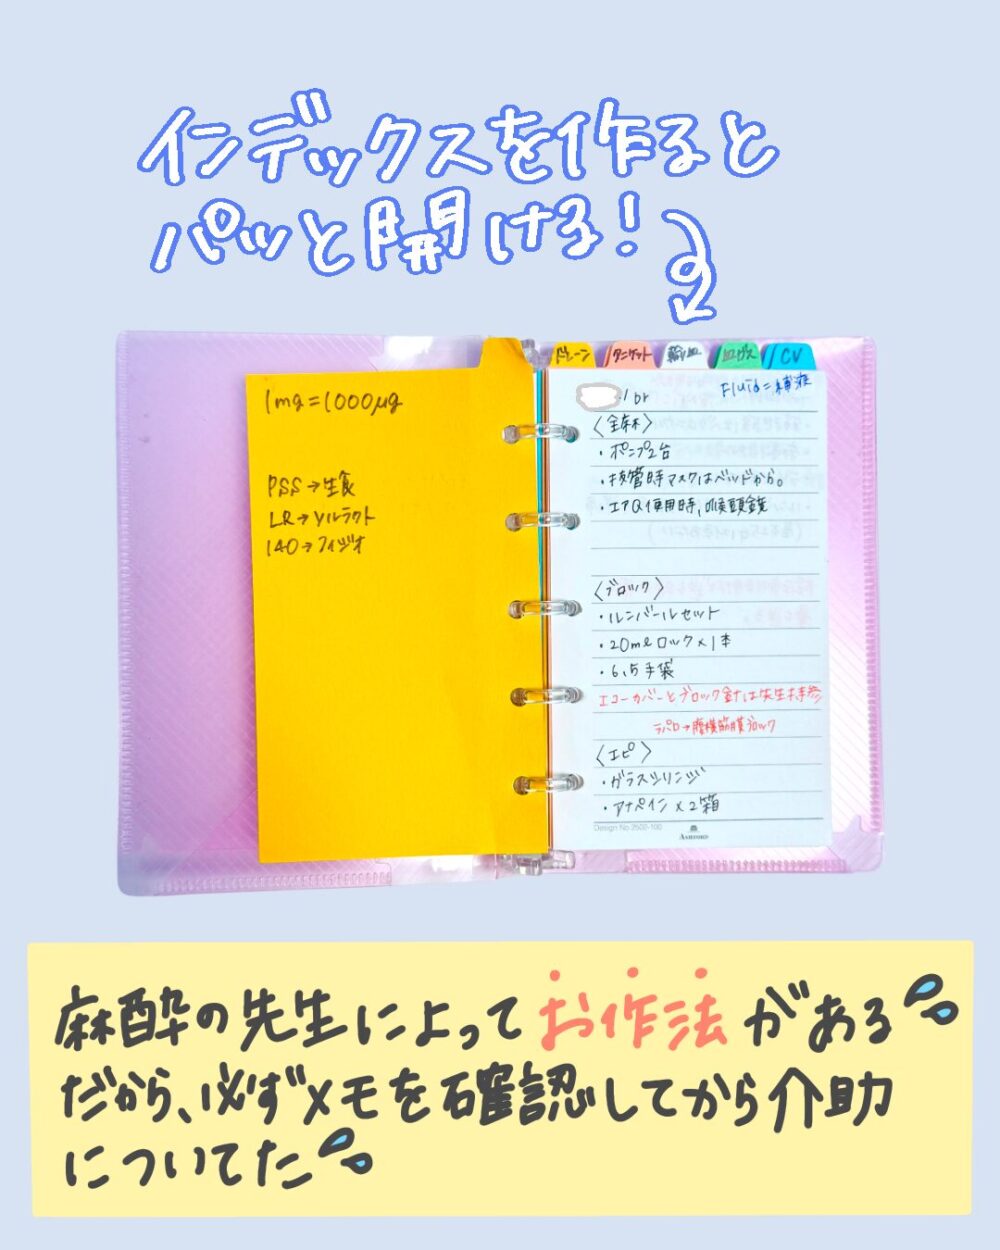 インデックスを作ると
パッと開ける!
ドレーン
タニケット
輸血
血ガス
CV
1mg=1000μg
PSS→生食
LR→ソルラクト
140→フィジオ
Fluid=補液
Dr
〈全麻〉
・ポンプ2台
・抜管時マスクはベッドから。
・エアQ使用時,喉頭鏡
〈ブロック〉
・ルンバールセット
・20mlロック×1本
・6.5手袋
エコーカバーとブロック針は先生持参
ラパロ→腹横筋膜ブロック
〈エピ〉
・ガラスシリンジ
・アナペイン×2箱
Design No.2502-100
ASHFORD
麻酔の先生によってお作法がある
だから、必ずメモを確認してから介助
についてた